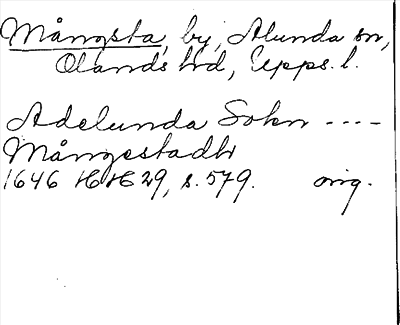 Mångsta, by, Alunda sn,
Olands hd, Upps. l.
Adelunda Sokn ----
Mångestadh
1646 HH 29, s. 579. orig.